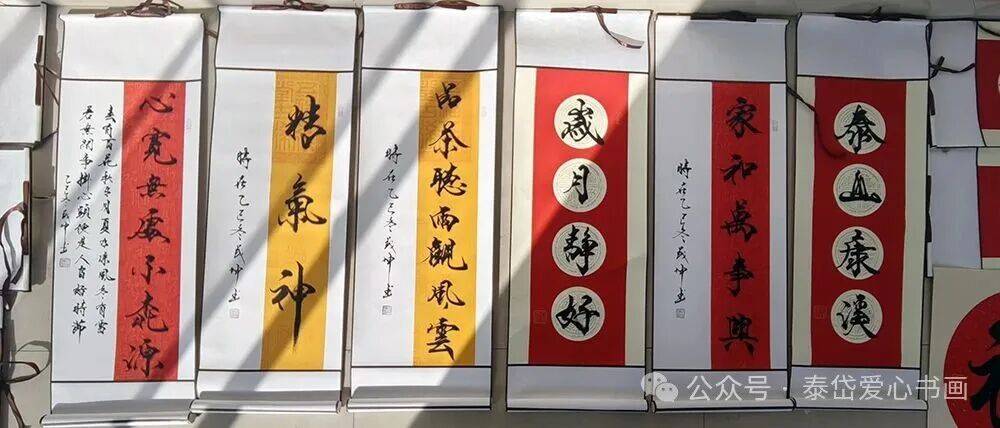 心寬無處不桃源
春有百花秋有月夏有凉風冬有雪
若無閑事掛心頭便是人間好時節
乙巳冬成坤书
精氣神
時在乙巳冬成坤书
品茶聽雨觀風雲
時在乙巳冬成坤书
歲月靜好
家和萬事興
時在乙巳冬成坤书
泰山康
公众号·泰岱爱心书画